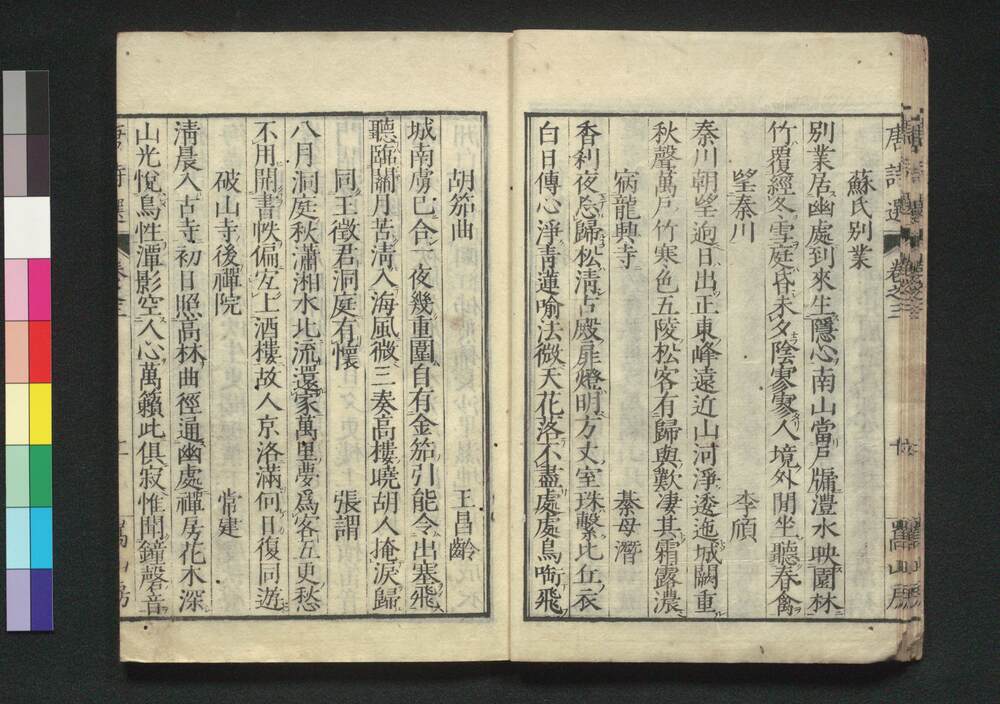 蘇氏別業
別業居幽處到來生隱心南山當戸牖灃水映園林
竹覆經冬雪庭昏未夕陰寥寥人境外閒坐聽春禽
望秦川 李頎
秦川朝望迥日出正東峰遠近山河淨逶迤城闕重
秋聲萬戸竹寒色五陵松客有歸與歎凄其霜露濃
宿龍興寺 綦母潛
香刹夜忘歸松清古殿扉燈明方丈室珠繫比丘衣
白日傳心淨青蓮喻法微天花落不盡處處鳥啣飛
唐詩選 卷之三 嵩山房
胡笳曲 王昌齡
城南虜已合一夜幾重圍自有金笳引能令出塞飛
聽臨關月苦清入海風微三奏高樓曉胡人掩淚歸
同王徵君洞庭有懷 張謂
八月洞庭秋瀟湘水北流還家萬里夢爲客五更愁
不用開書帙偏宜上酒樓故人京洛滿何日復同遊
破山寺後禪院 常建
清晨入古寺初日照高林曲徑通幽處禪房花木深
山光悅鳥性潭影空人心萬籟此俱寂惟聞鐘磬音